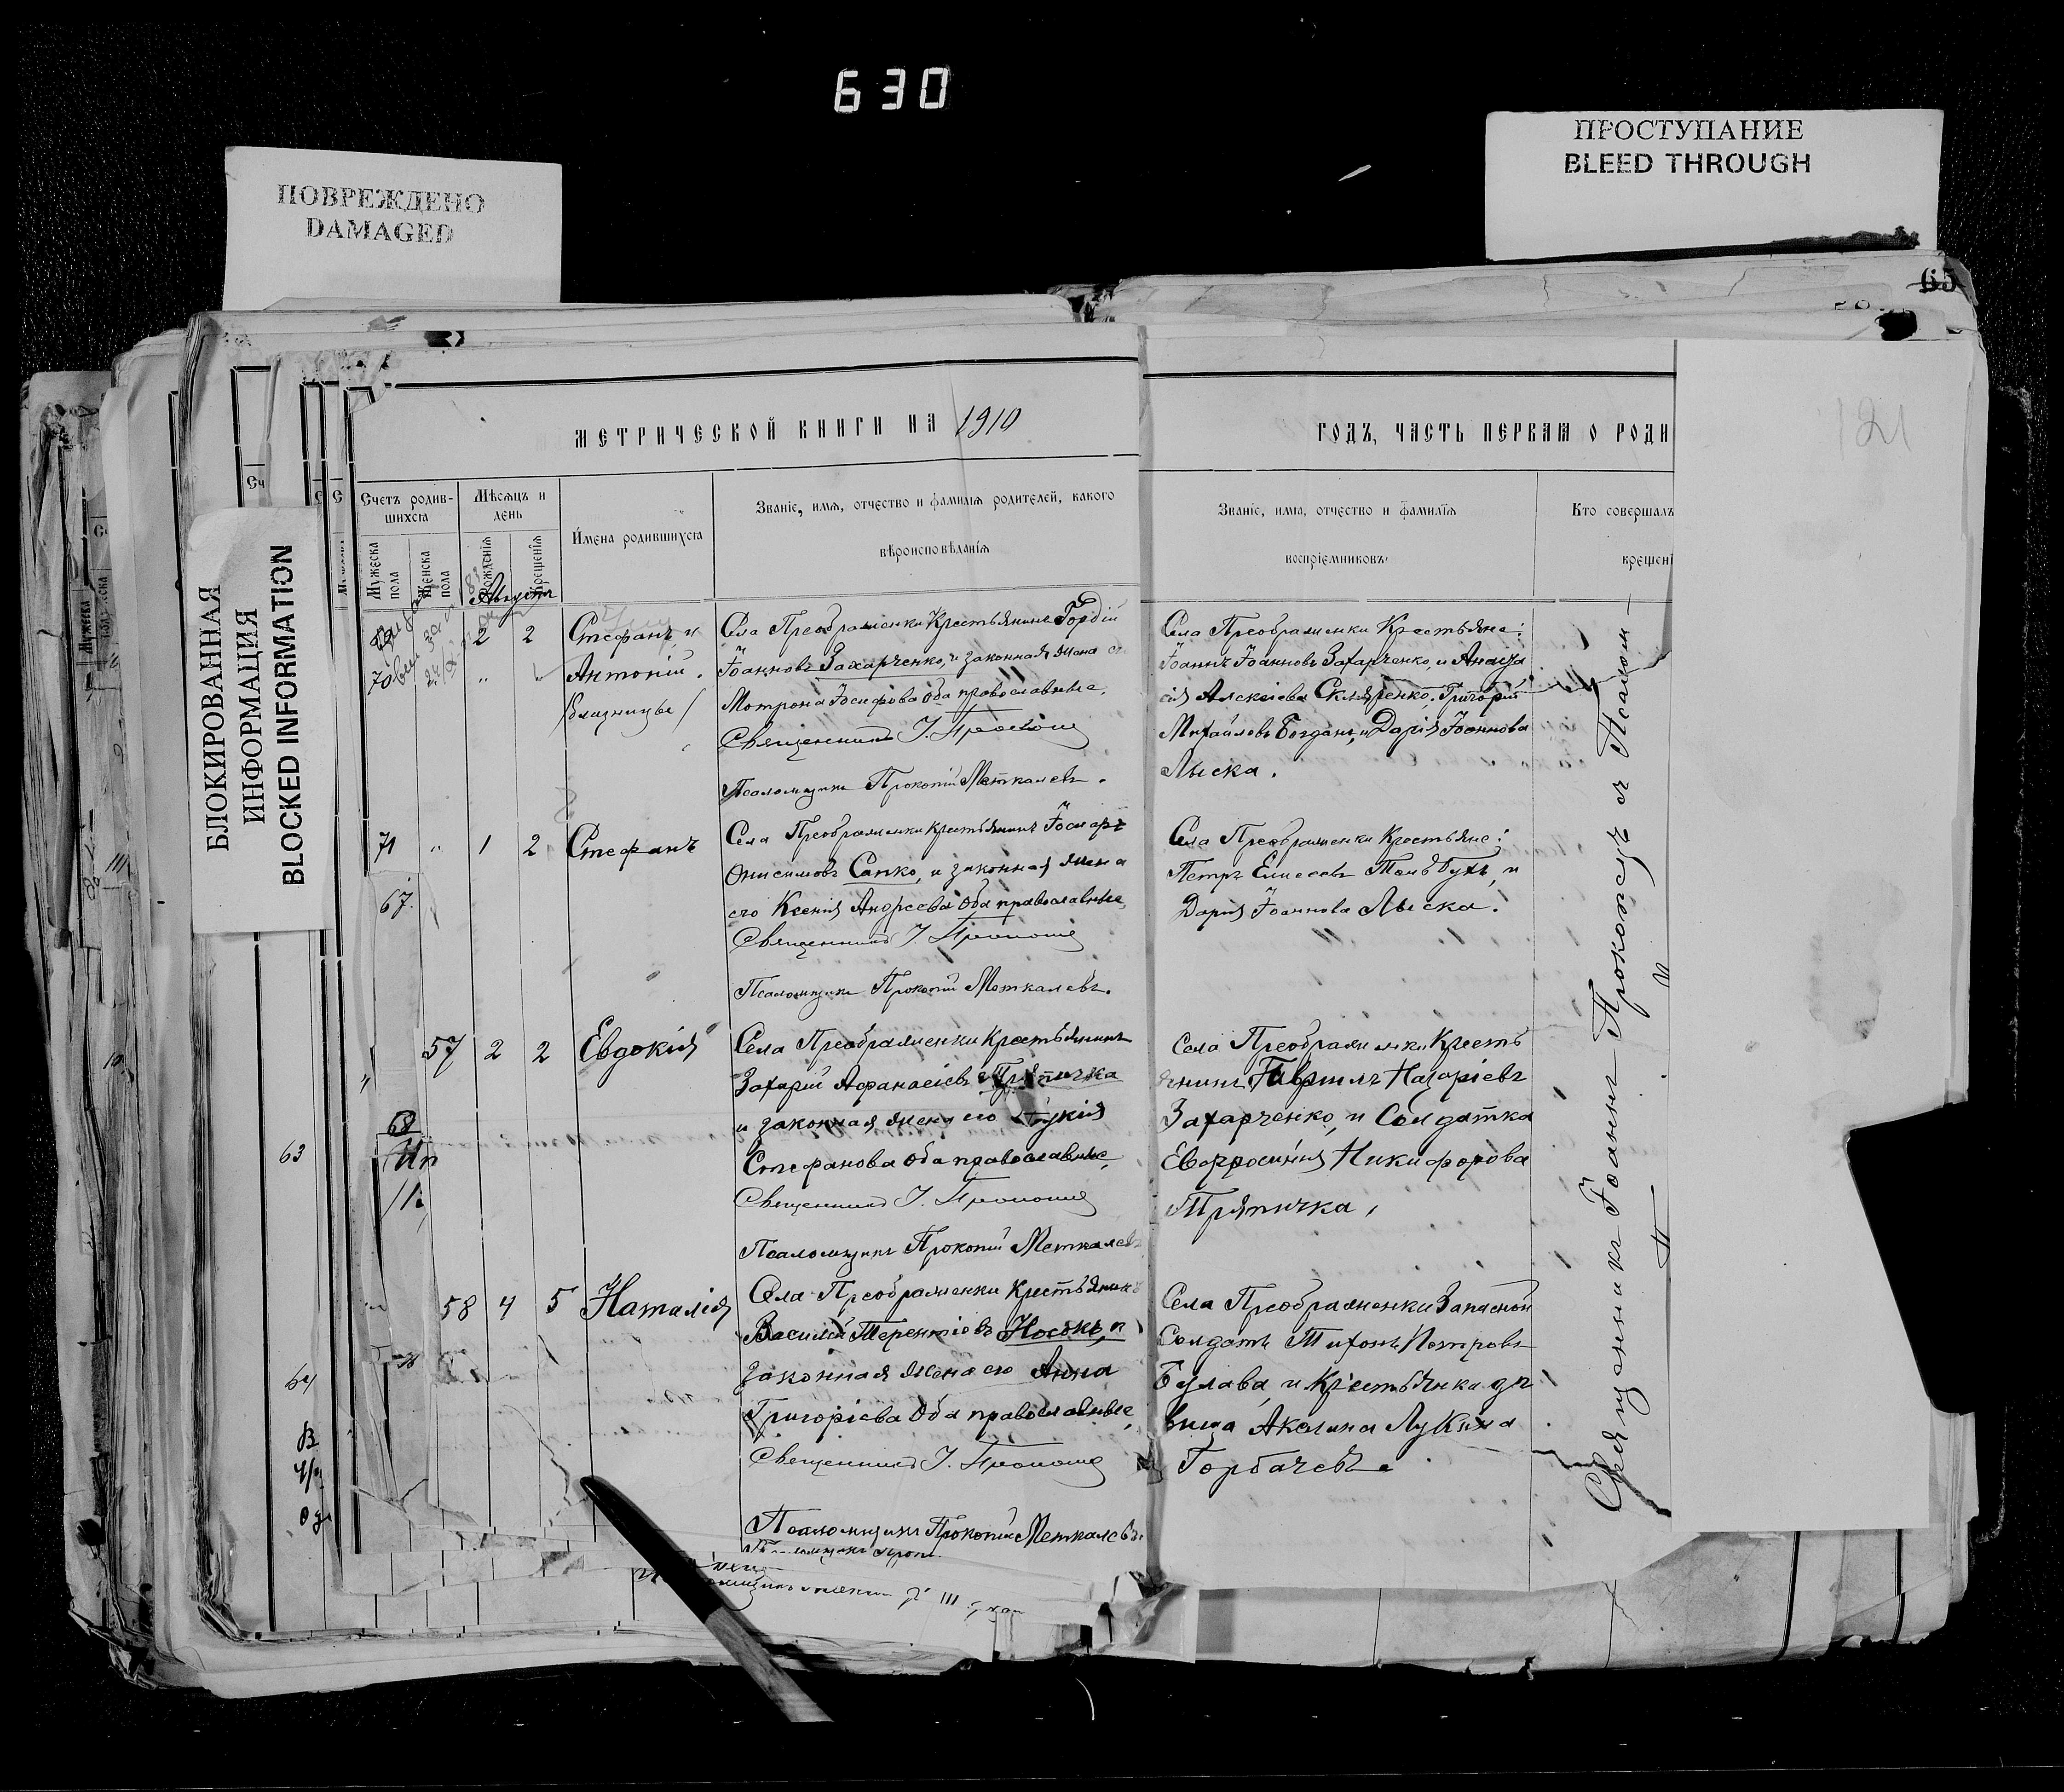 630
ПОВРЕЖДЕНО
DAMAGED
ПРОСТУПАНИЕ
BLEED THROUGH
65
121
БЛОКИРОВАННАЯ
ИНФОРМАЦИЯ
BLOCKED INFORMATION
МЕТРИЧЕСКОЙ КНИГИ НА 1910
ГОДЪ, ЧАСТЬ ПЕРВАЯ О РОДИ
Счетъ родив-
шихся
Мужеска
пола
Женска
пола
Мѣсяцъ и
день
Рожденія
Крещенія
Имена родившихся
Званіе, имя, отчество и фамилія родителей, какого
вѣроисповѣданія
Званіе, имя, отчество и фамилія
воспріемниковъ
Кто совершалъ
крещені
Августъ
2 2 Стефанъ и
70 Антоній.
/близнецы/
Села Преображенки Крестьянинъ Гордій
Іоанновъ Захарченко, и законная жена
Мотрона Іосифова оба православные,
Священникъ І.
Псаломщикъ Прокопій Меткалевъ.
Села Преображенки Крестьяне:
Іоаннъ Іоанновъ Захарченко, и Анаста
сія Алексіева Скляренко, Григорий
Михайловъ Богданъ, и Дарія Іоаннова
Лыска.
71 " 1 2 Стефанъ
67.
Села Преображенки Крестьянинъ Іосифъ
Онисимовъ Сапко, и законная жена
его Ксенія Андреева оба православные,
Священникъ І.
Псаломщикъ Прокопій Меткалевъ.
Села Преображенки Крестьяне:
Петръ Елисеевъ и
Дарія Іоаннова Лыска.
57 2 2 Евдокія
68
Села Преображенки Крестьянинъ
Захарій Афанасіевъ Тряпичка
и законная жена его
Стефанова оба православные,
Священникъ І.
Псаломщикъ Прокопій Меткалевъ
Села Преображенки Кресть
янинъ Гавріилъ Назаріевъ
Захарченко, и Солдатка
Евфросинія Никифорова
Тряпичка,
63
58 4 5 Наталія
Села Преображенки Крестьянинъ
Василій Терентіевъ Носокъ, и
законная жена его Анна
Григоріева оба православные,
Священникъ І.
Псаломщикъ Прокопій Меткалевъ
Села Преображенки Запасной
Солдатъ Тихонъ Петровъ
Булава, и Крестьянка дѣ
вица Акилина Лукина
Горбачевъ
64
Священникъ Іоаннъ